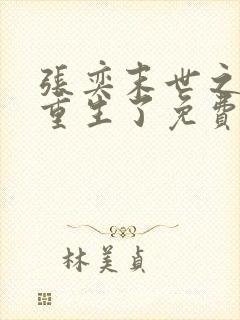 張奕末世之
重生了免費
林美貞